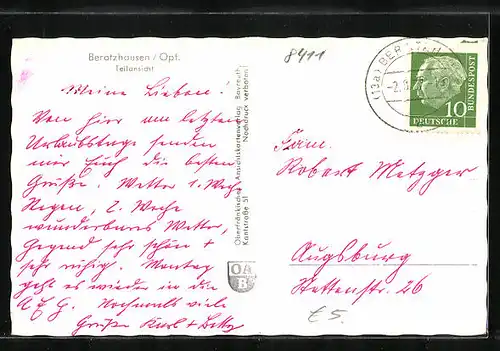 Beratzhausen / Opf.
Teilansicht
8411
Meine Lieben.
Von hier am letzten
Urlaubstage senden
wir Euch die besten
Grüße. Wetter 1. Woche
Regen, 2. Woche
wunderbares Wetter,
Gegend sehr schön +
sehr ruhig. Montag
geht es wieder in die
Nochmals viele
Grüße Karl +
Oberfränkischer Ansichtskartenverlag Bayreuth
Kantstraße 51
Nachdruck verboten
OA
B
(13a) BER
10
DEUTSCHE
BUNDESPOST
Fam.
Robert Metzger
Augsburg
Stettenstr. 26
£5.